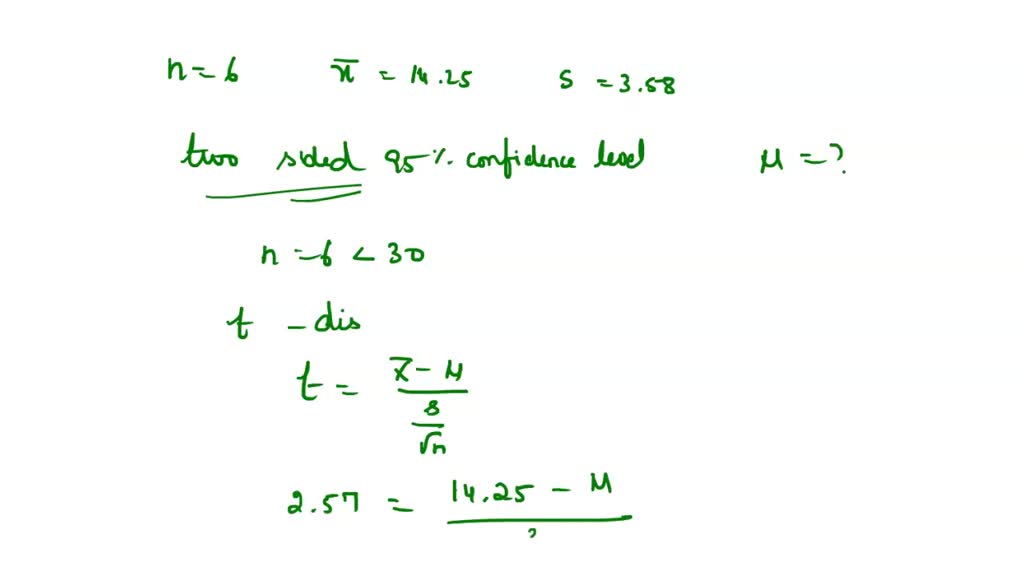 n = 6 x̄ = 14.25 s = 3.58
two sided 95% confidence level μ = ?
n = 6 < 30
t - dis
t = x̄ - μ
s
√n
2.57 = 14.25 - μ